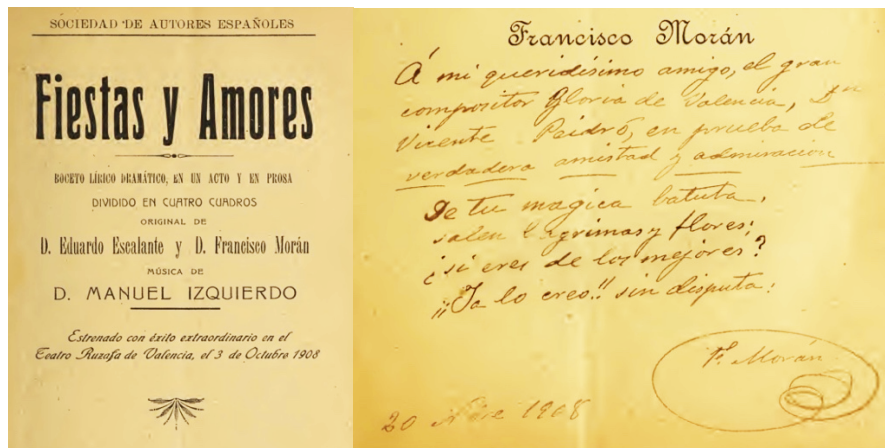 SOCIEDAD DE AUTORES ESPAÑOLES
Fiestas y Amores
BOCETO LÍRICO DRAMÁTICO, EN UN ACTO Y EN PROSA
DIVIDIDO EN CUATRO CUADROS
ORIGINAL DE
D. Eduardo Escalante y D. Francisco Morán
MÚSICA DE
D. MANUEL IZQUIERDO
Estrenado con éxito extraordinario en el
Teatro Ruzafa de Valencia, el 3 de Octubre 1908
Francisco Morán
Á mi queridísimo amigo, el gran
compositor Gloria de Valencia, Dn
Vicente Peidró, en prueba de
verdadera amistad y admiración
De tu magica batuta,
salen lagrimas y flores;
¿si eres de los mejores?
¡¡Ya lo creo!! sin disputa.
F. Morán
20 Nbre 1908